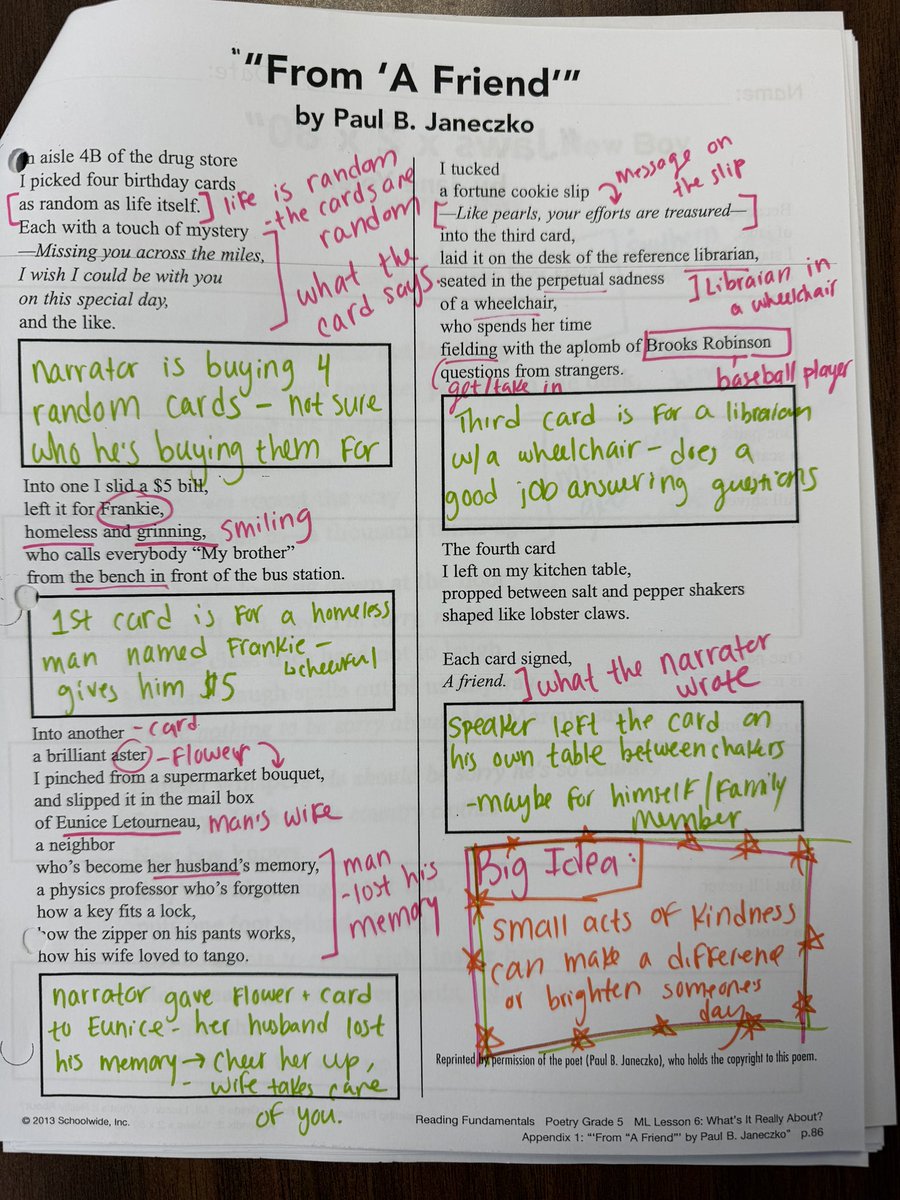 " "From 'A Friend'"
by Paul B. Janeczko
n aisle 4B of the drug store
I picked four birthday cards
[as random as life itself.] life is random
-the cards are
random
Each with a touch of mystery
—Missing you across the miles,
I wish I could be with you
on this special day,
and the like.
] what the
card says.
Narrator is buying 4
random cards - not sure
who he's buying them for
Into one I slid a $5 bill,
left it for Frankie,
homeless and grinning, smiling
who calls everybody “My brother”
from the bench in front of the bus station.
1st card is for a homeless
man named Frankie -
↳cheerful
gives him $5
Into another - card
a brilliant aster - Flower
I pinched from a supermarket bouquet,
and slipped it in the mail box
of Eunice Letourneau, man's wife
a neighbor
who's become her husband's memory,
a physics professor who's forgotten
how a key fits a lock,
how the zipper on his pants works,
how his wife loved to tango.
] man
-lost his
memory
narrator gave flower + card
to Eunice - her husband lost
his memory → cheer her up,
- wife takes care
of you.
I tucked
a fortune cookie slip
message on
the slip
[—Like pearls, your efforts are treasured—]
into the third card,
laid it on the desk of the reference librarian,
seated in the perpetual sadness
of a wheelchair,
] Libraian in
a wheelchair
who spends her time
fielding with the aplomb of Brooks Robinson
(questions from strangers.
get/take in
baseball player
Third card is for a libraian
w/a wheelchair - does a
good job answering questions
The fourth card
I left on my kitchen table,
propped between salt and pepper shakers
shaped like lobster claws.
Each card signed,
A friend. ] what the narrator
wrote
Speaker left the card on
his own table between chakers
-maybe for himself/family
member
Big Idea:
small acts of kindness
can make a difference
or brighten someones
day
Reprinted by permission of the poet (Paul B. Janeczko), who holds the copyright to this poem.
© 2013 Schoolwide, Inc.
Reading Fundamentals Poetry Grade 5 ML Lesson 6: What's It Really About?
Appendix 1: “'From “A Friend”' by Paul B. Janeczko” p.86